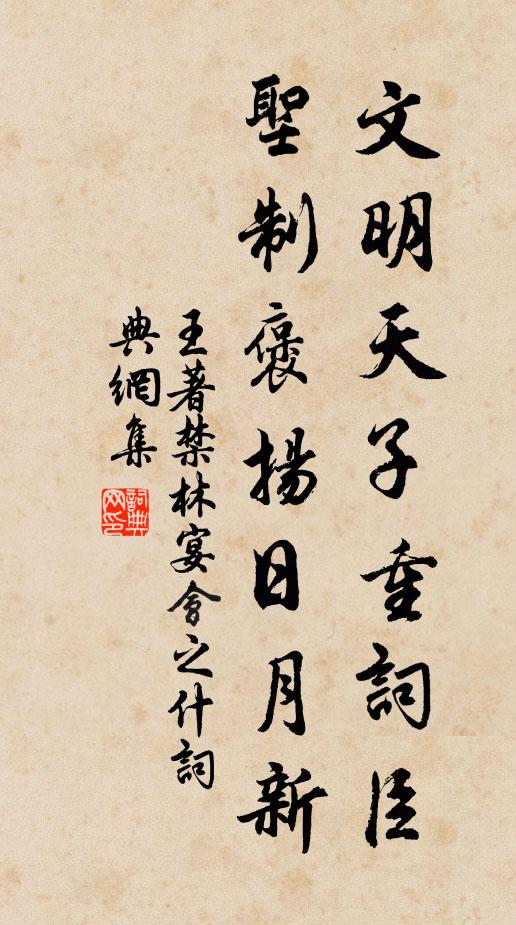 文明天子重詞臣
聖制褒揚日月新
王著禁林宴會之什詞
典網集
詞典網印